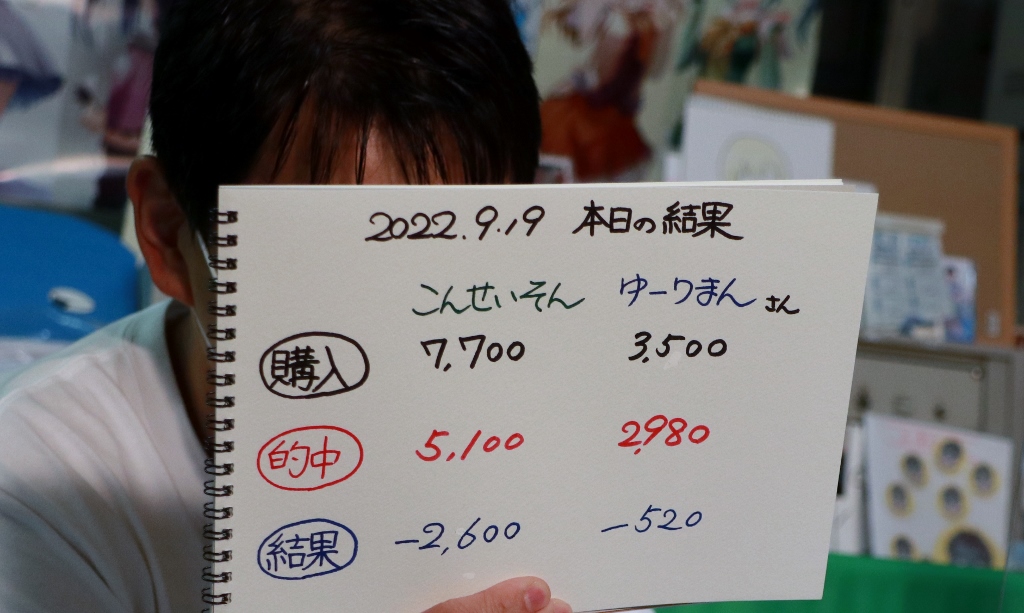 2022.9.19 本日の結果
こんせいそん ゆーりまん さん
購入 7,700 3,500
的中 5,100 2,980
結果 -2,600 -520